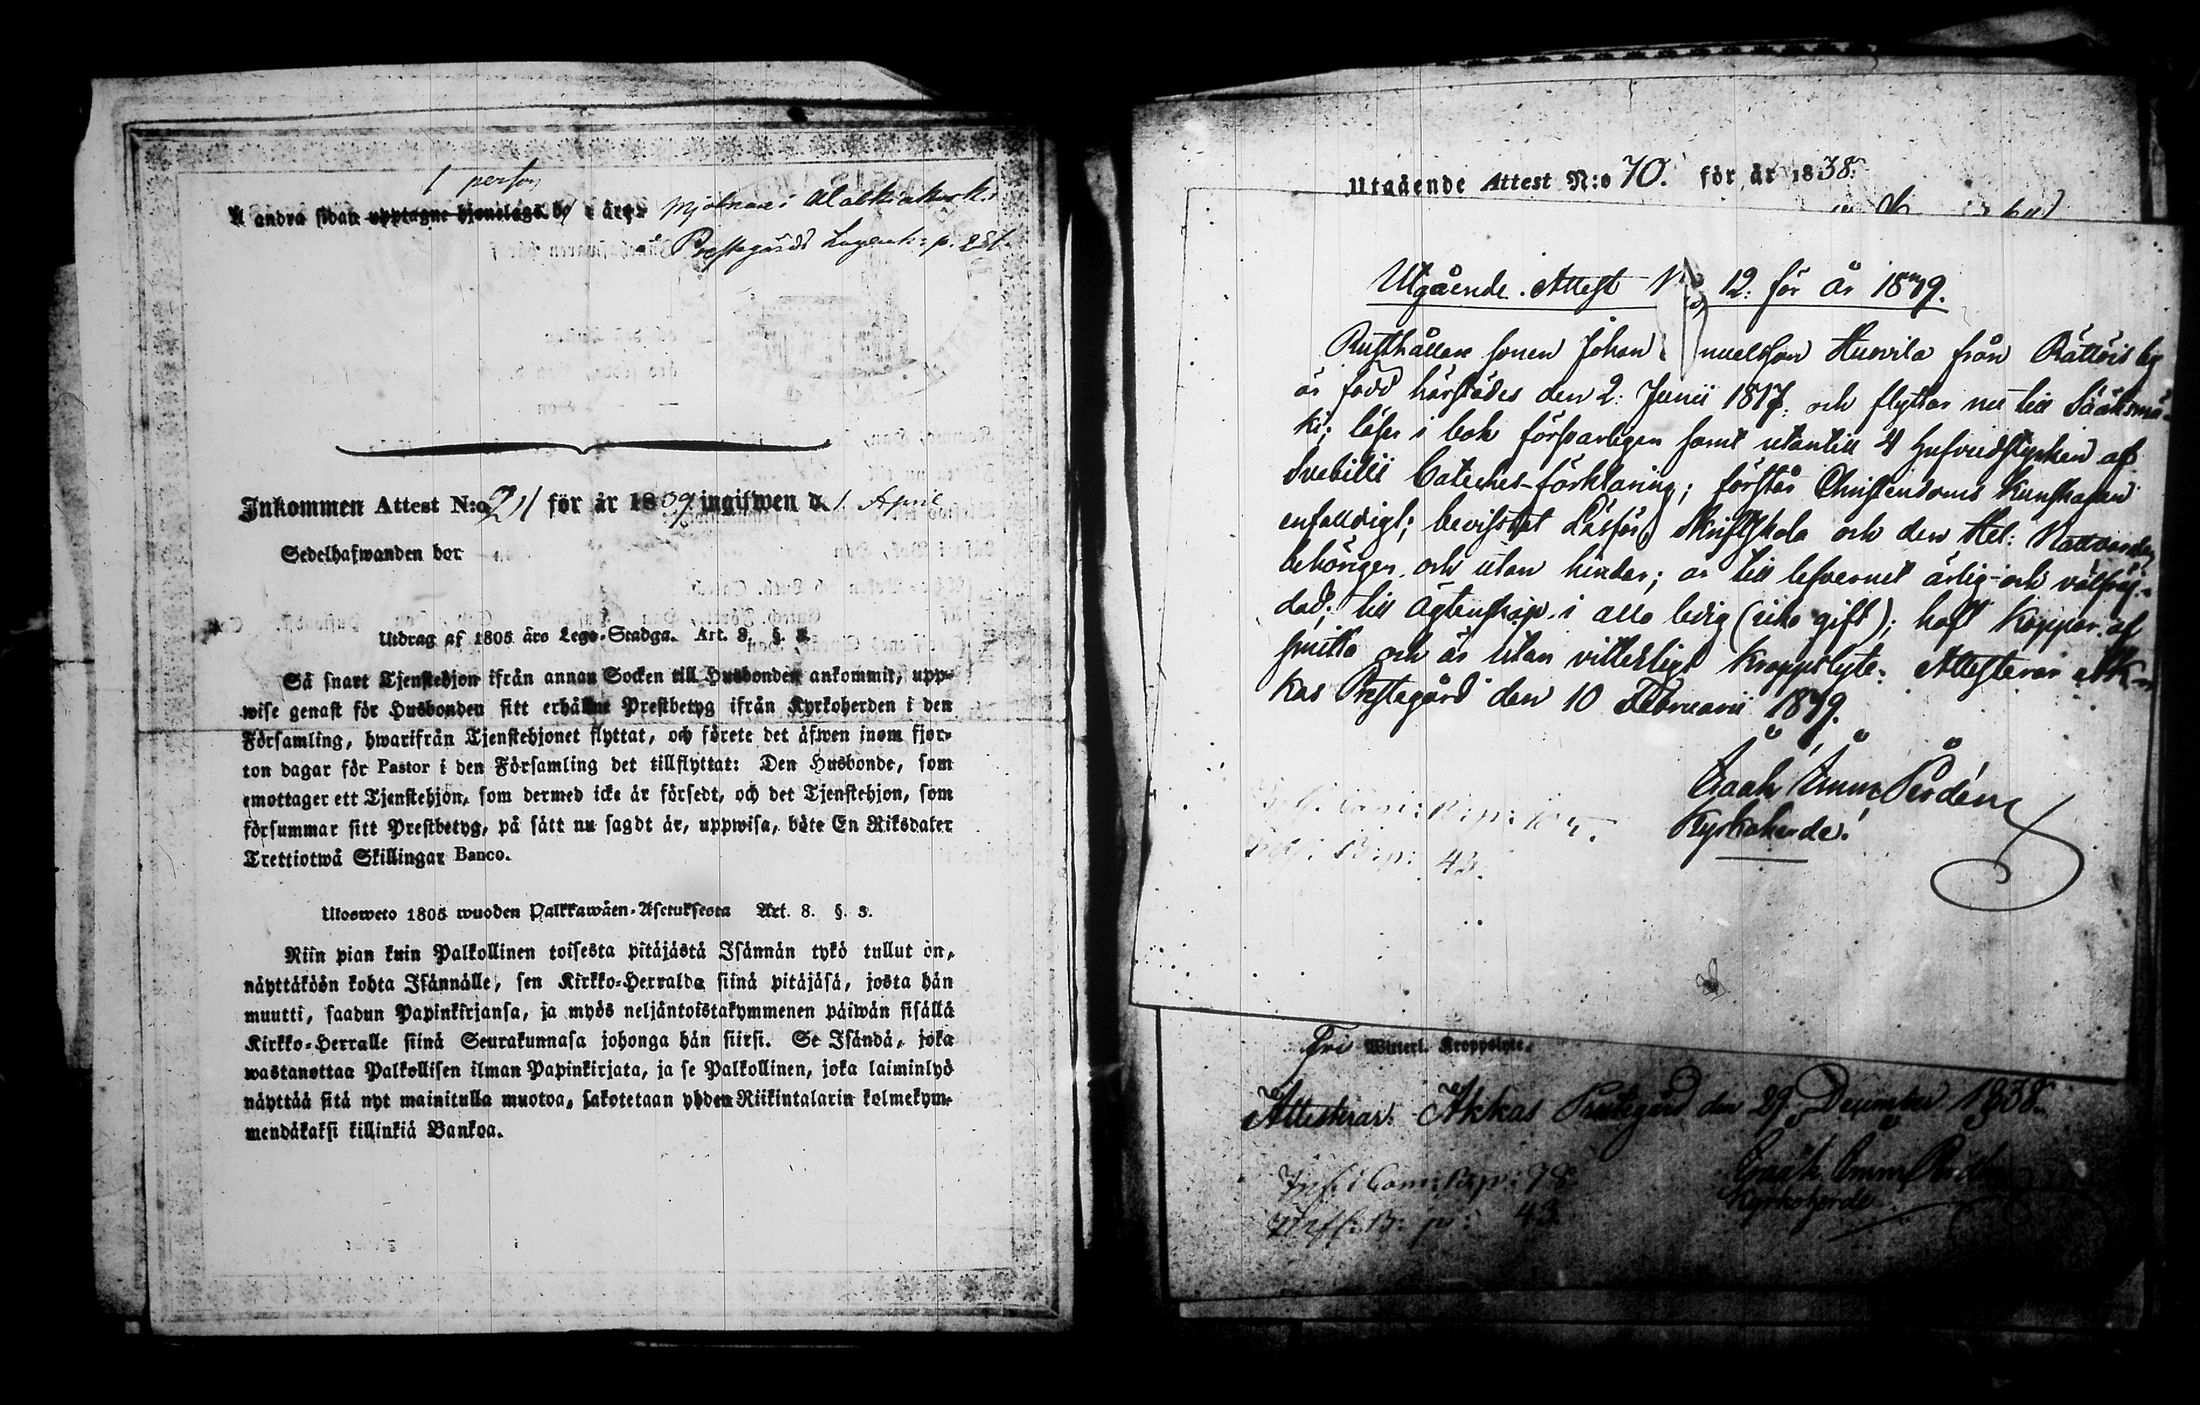 1 person
Å andra sidan upptagne hjonelags b  i äro Mjölnare i
Prestegårds p.
Inkommen Attest N:o 21 för år 1839 ingifwen d. 1. April
Sedelhafwanden bor
Utdrag af 1805 års Lego-Stadga. Art. 8. §. 3.
Så snart Tjenstehjon ifrån annan Socken till Husbonden ankommit, upp-
wise genast för Husbonden sitt erhållne Prestbetyg ifrån Kyrkoherden i den
Församling, hwarifrån Tjenstehjonet flyttat, och förete det äfwen inom fjor-
ton dagar för Pastor i den Församling det tillflyttat: Den Husbonde, som
emottager ett Tjenstehjon, som dermed icke är försedt, och det Tjenstehjon, som
försummar sitt Prestbetyg, på sätt nu sagdt är, uppwisa, böte En Riksdaler
Trettiotwå Skillingar Banco.
Ulosweto 1805 wuoden Palkkawäen-Asetuksesta Art. 8. §. 3.
Niin pian kuin Palkollinen toisesta pitäjästä Isännän tykö tullut on,
näyttäköön kohta Isännälle, sen Kirkko-Herralda siinä pitäjäsä, josta hän
muutti, saadun Papinkirjansa, ja myös neljäntoistakymmenen päiwän sisällä
Kirkko-Herralle siinä Seurakunnasa johonga hän siirsi. Se Isändä, joka
wastanottaa Palkollisen ilman Papinkirjata, ja se Palkollinen, joka laiminlyö
näyttää sitä nyt mainitulla muotoa, sakotetaan yhden Riikintalarin kolmekym-
mendäkaksi killinkiä Bankoa.
Utgående Attest N:o 70. för år 1838.
Utgående Attest N:o 12. för år 1839.
Rusthållare sonen Johan nuelsson Huovila från Rättöis by
är född härstädes den 2. Junii 1817. och flyttar nu till Sääksmä-
ki; läser i bok försvarligen samt utantill 4 hufvudstycken af
Svebilii Cateches-förklaring; förstår Christendoms kunskapen
enfaldigt; bevistat Läsför, Skriftskola och den Hel: Nattvarden
behörigen och utan hinder; är till lefvernet ärlig och välfräj-
dad; till ägtenskap i allo ledig (icke gift); haft koppor af
smitta och är utan vitterligt kroppslyte. Attesterar Ak-
kas Prestegård den 10 Februarii 1839.
Gnah: Emm: Perdén
Kyrkoherde.
Infl. i Com: B: p:
Infl: B: p: 43.
Fri Witterl. Kroppslyte.
Attesterar. Akkas Prestegård den 29 December 1838.
Inf: i Com: B: p: 98
Infl: B: p: 43
Gnah: Emm: Perdén
Kyrkoherde